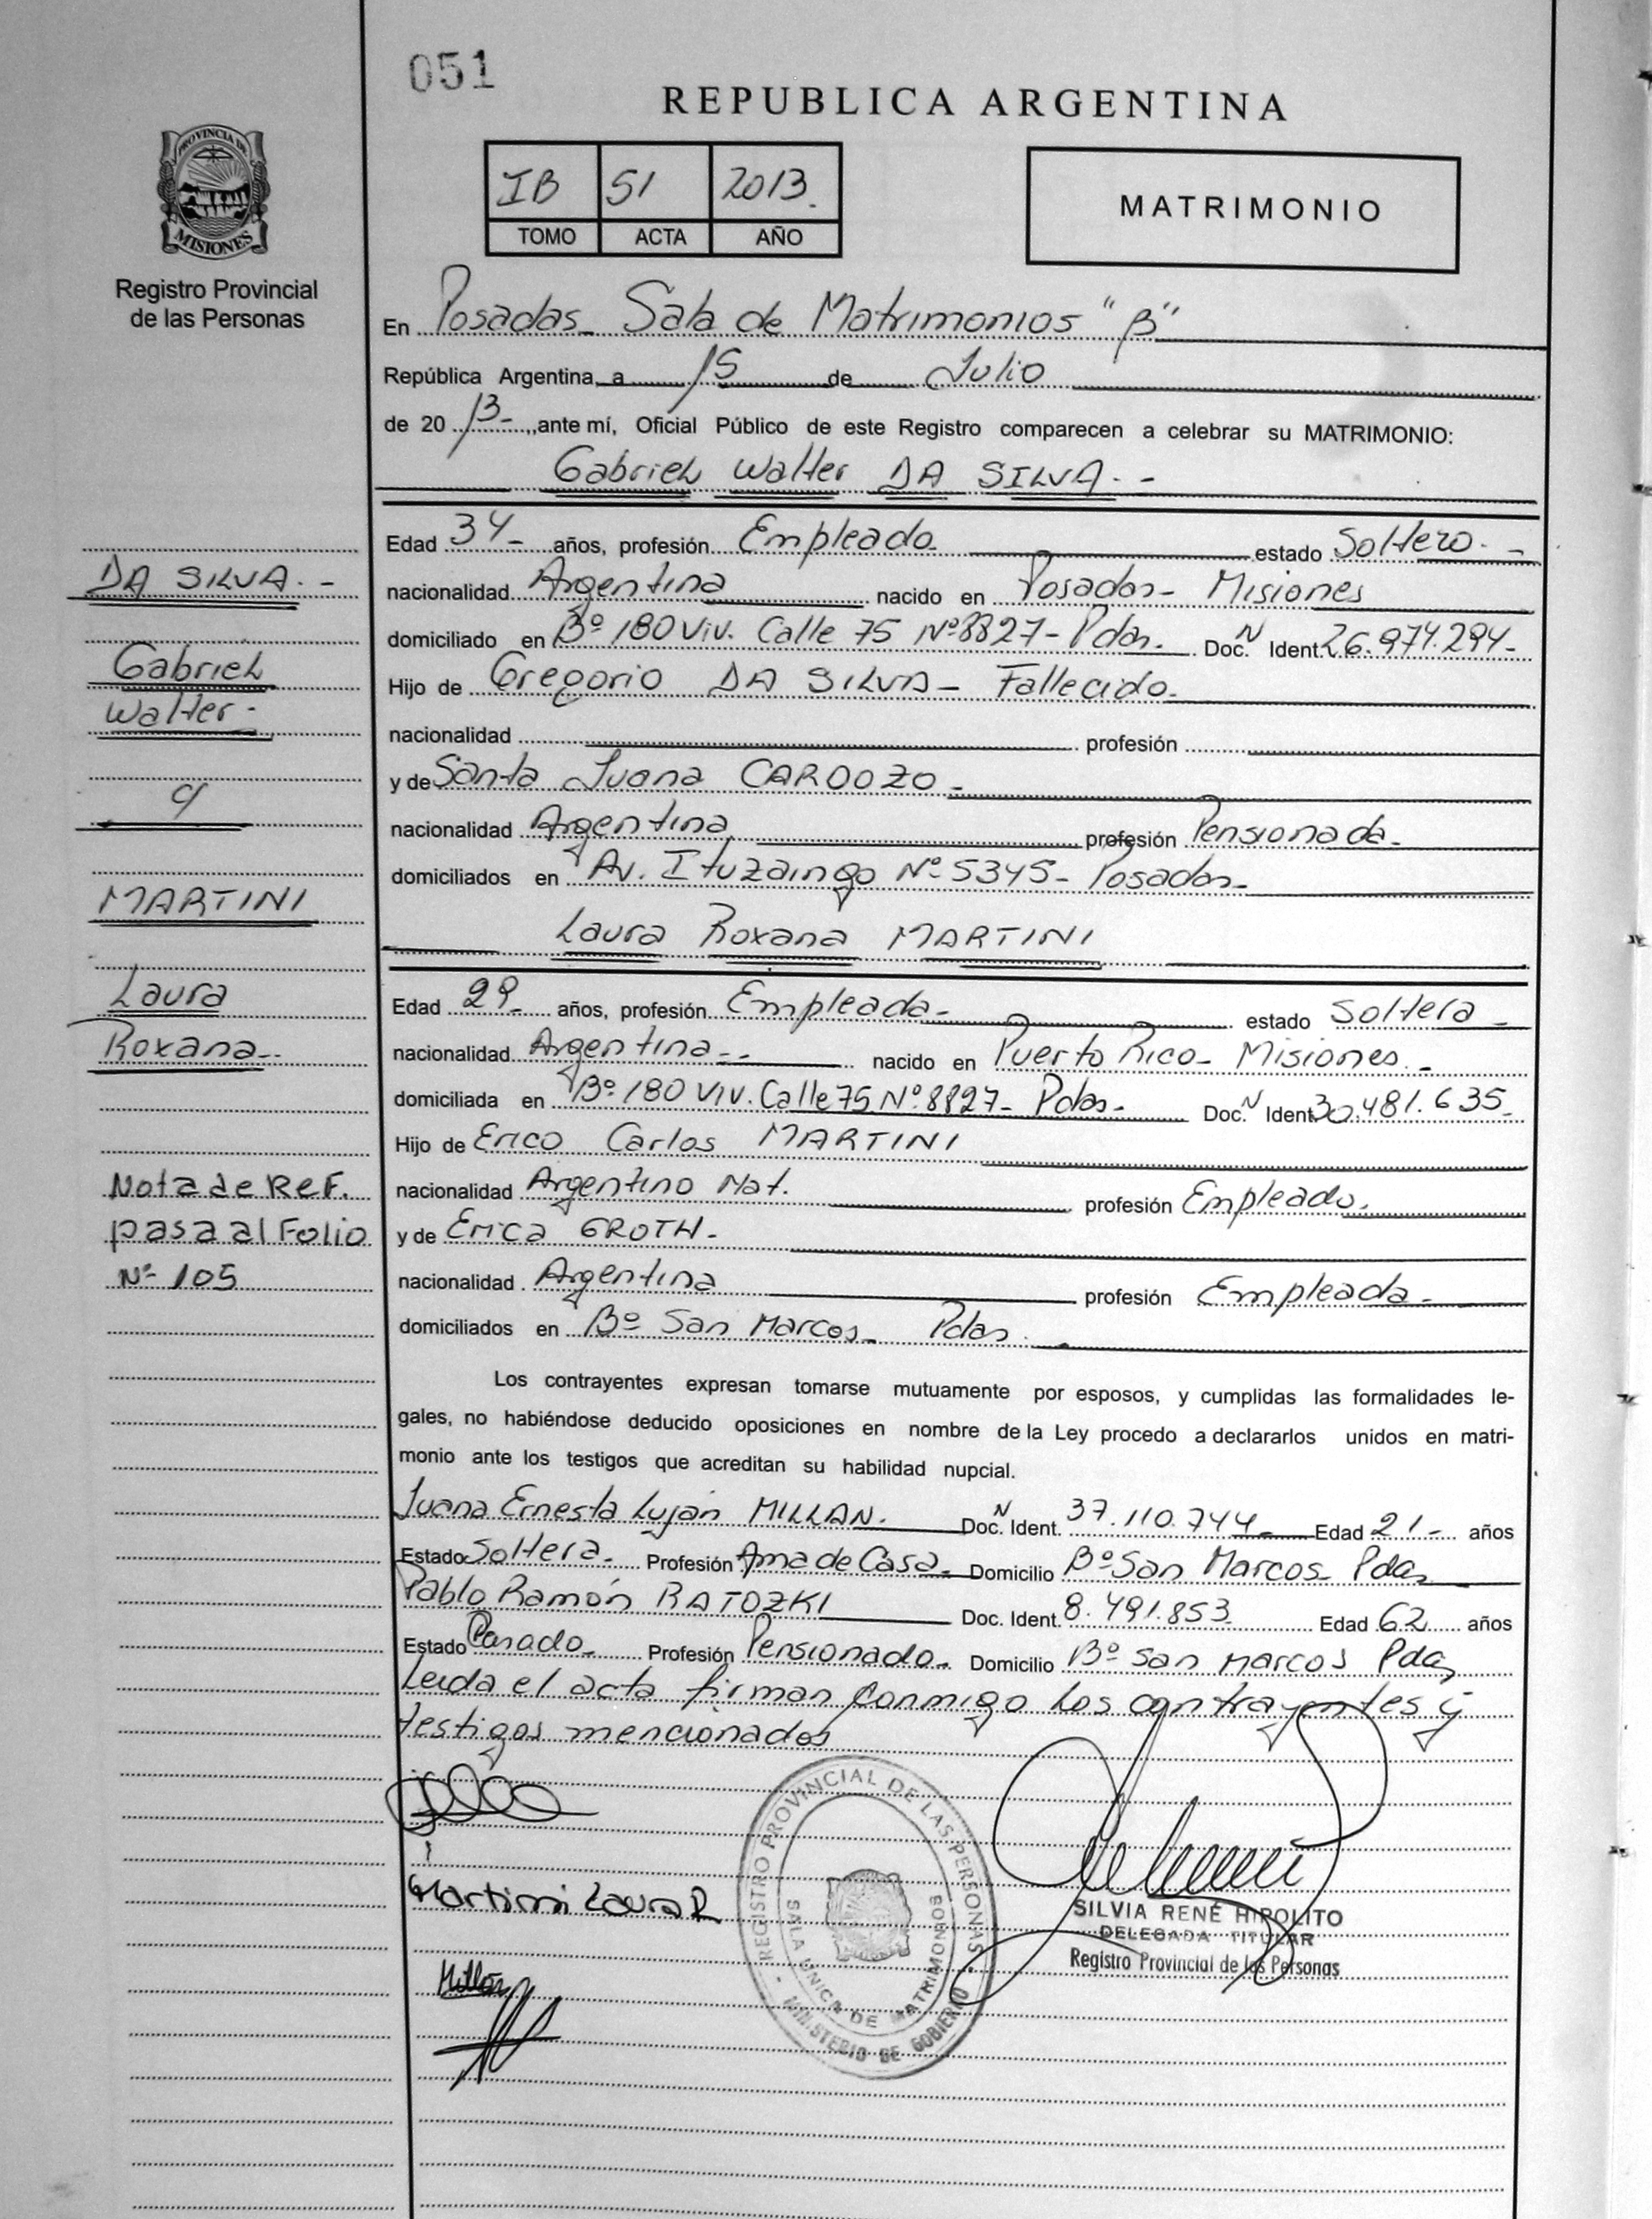 051
REPUBLICA ARGENTINA
PROVINCIA DE
MISIONES
Registro Provincial
de las Personas
IB 51 2013.
TOMO ACTA AÑO
MATRIMONIO
En Posadas_ Sala de Matrimonios "B"
República Argentina, a 15 de Julio
de 20 13- ,,ante mí, Oficial Público de este Registro comparecen a celebrar su MATRIMONIO:
Gabriel Walter DA SILVA. -
Edad 34- años, profesión Empleado- estado Soltero. -
nacionalidad Argentina nacido en Posadas- Misiones
domiciliado en Bº 180 Viv. Calle 75 Nº 8827- Pdas. Doc. N Ident. 26.974.294-
Hijo de Gregorio DA SILVA- Fallecido-
nacionalidad profesión
y de Santa Juana CARDOZO-
nacionalidad Argentina profesión Pensionada-
domiciliados en Av. Ituzaingo Nº 5345- Posadas-
Laura Roxana MARTINI
Edad 29- años, profesión Empleada- estado Soltera -
nacionalidad Argentina-- nacido en Puerto Rico- Misiones. -
domiciliada en Bº 180 Viv. Calle 75 Nº 8827- Pdas- Doc. N Ident. 30.481.635.
Hijo de Erico Carlos MARTINI
nacionalidad Argentino Nat. profesión Empleado.
y de Erica GROTH-
nacionalidad Argentina profesión Empleada-
domiciliados en Bº San Marcos- Pdas.
Los contrayentes expresan tomarse mutuamente por esposos, y cumplidas las formalidades le-
gales, no habiéndose deducido oposiciones en nombre de la Ley procedo a declararlos unidos en matri-
monio ante los testigos que acreditan su habilidad nupcial.
Juana Ernesta Luján MILLAN. Doc. N Ident. 37.110.744- Edad 21- años
Estado Soltera- Profesión Ama de Casa- Domicilio Bº San Marcos- Pdas
Pablo Ramón RATOZKI Doc. Ident. 8.491.853 Edad 62 años
Estado Casado- Profesión Pensionado- Domicilio Bº San Marcos Pdas
Leida el acta firman conmigo los contrayentes y
testigos mencionados
Martini Laura R
Millán
REGISTRO PROVINCIAL DE LAS PERSONAS
SALA UNICA DE MATRIMONIOS
MINISTERIO DE GOBIERNO
SILVIA RENÉ HIPOLITO
DELEGADA TITULAR
Registro Provincial de las Personas
DA SILVA. -
Gabriel
Walter-
c/
MARTINI
Laura
Roxana--
Nota de Ref.
pasa al Folio
Nº 105